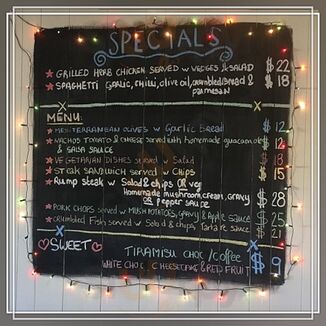 SPECIALS
GRILLED HERB CHICKEN SERVED w VEGGIES & SALAD $ 22
SPAGHETTI GARLIC, CHILLI, olive oil, crumbled bread & parmesan 18
MENU:
MEDITERRANEAN OLIVES w Garlic Bread $ 12
NACHOS TOMATO & CHEESE served with homemade guacamole
& SALSA SAUCE
VEGETARIAN DISHES served w Salad 18
STEAK SANDWICH served w CHIPS 15
Rump STEAK w Salad & chips OR veg
homemade mushroom cream, gravy 28
OR pepper sauce
PORK CHOPS served w MUSH POTATOES, gravy & Apple sauce 25
crumbled Fish served w Salad & chips, Tartare sauce 21
SWEET TIRAMISU CHOC / coffee
WHITE CHOC CHEESECAKE & RED FRUIT $ 9